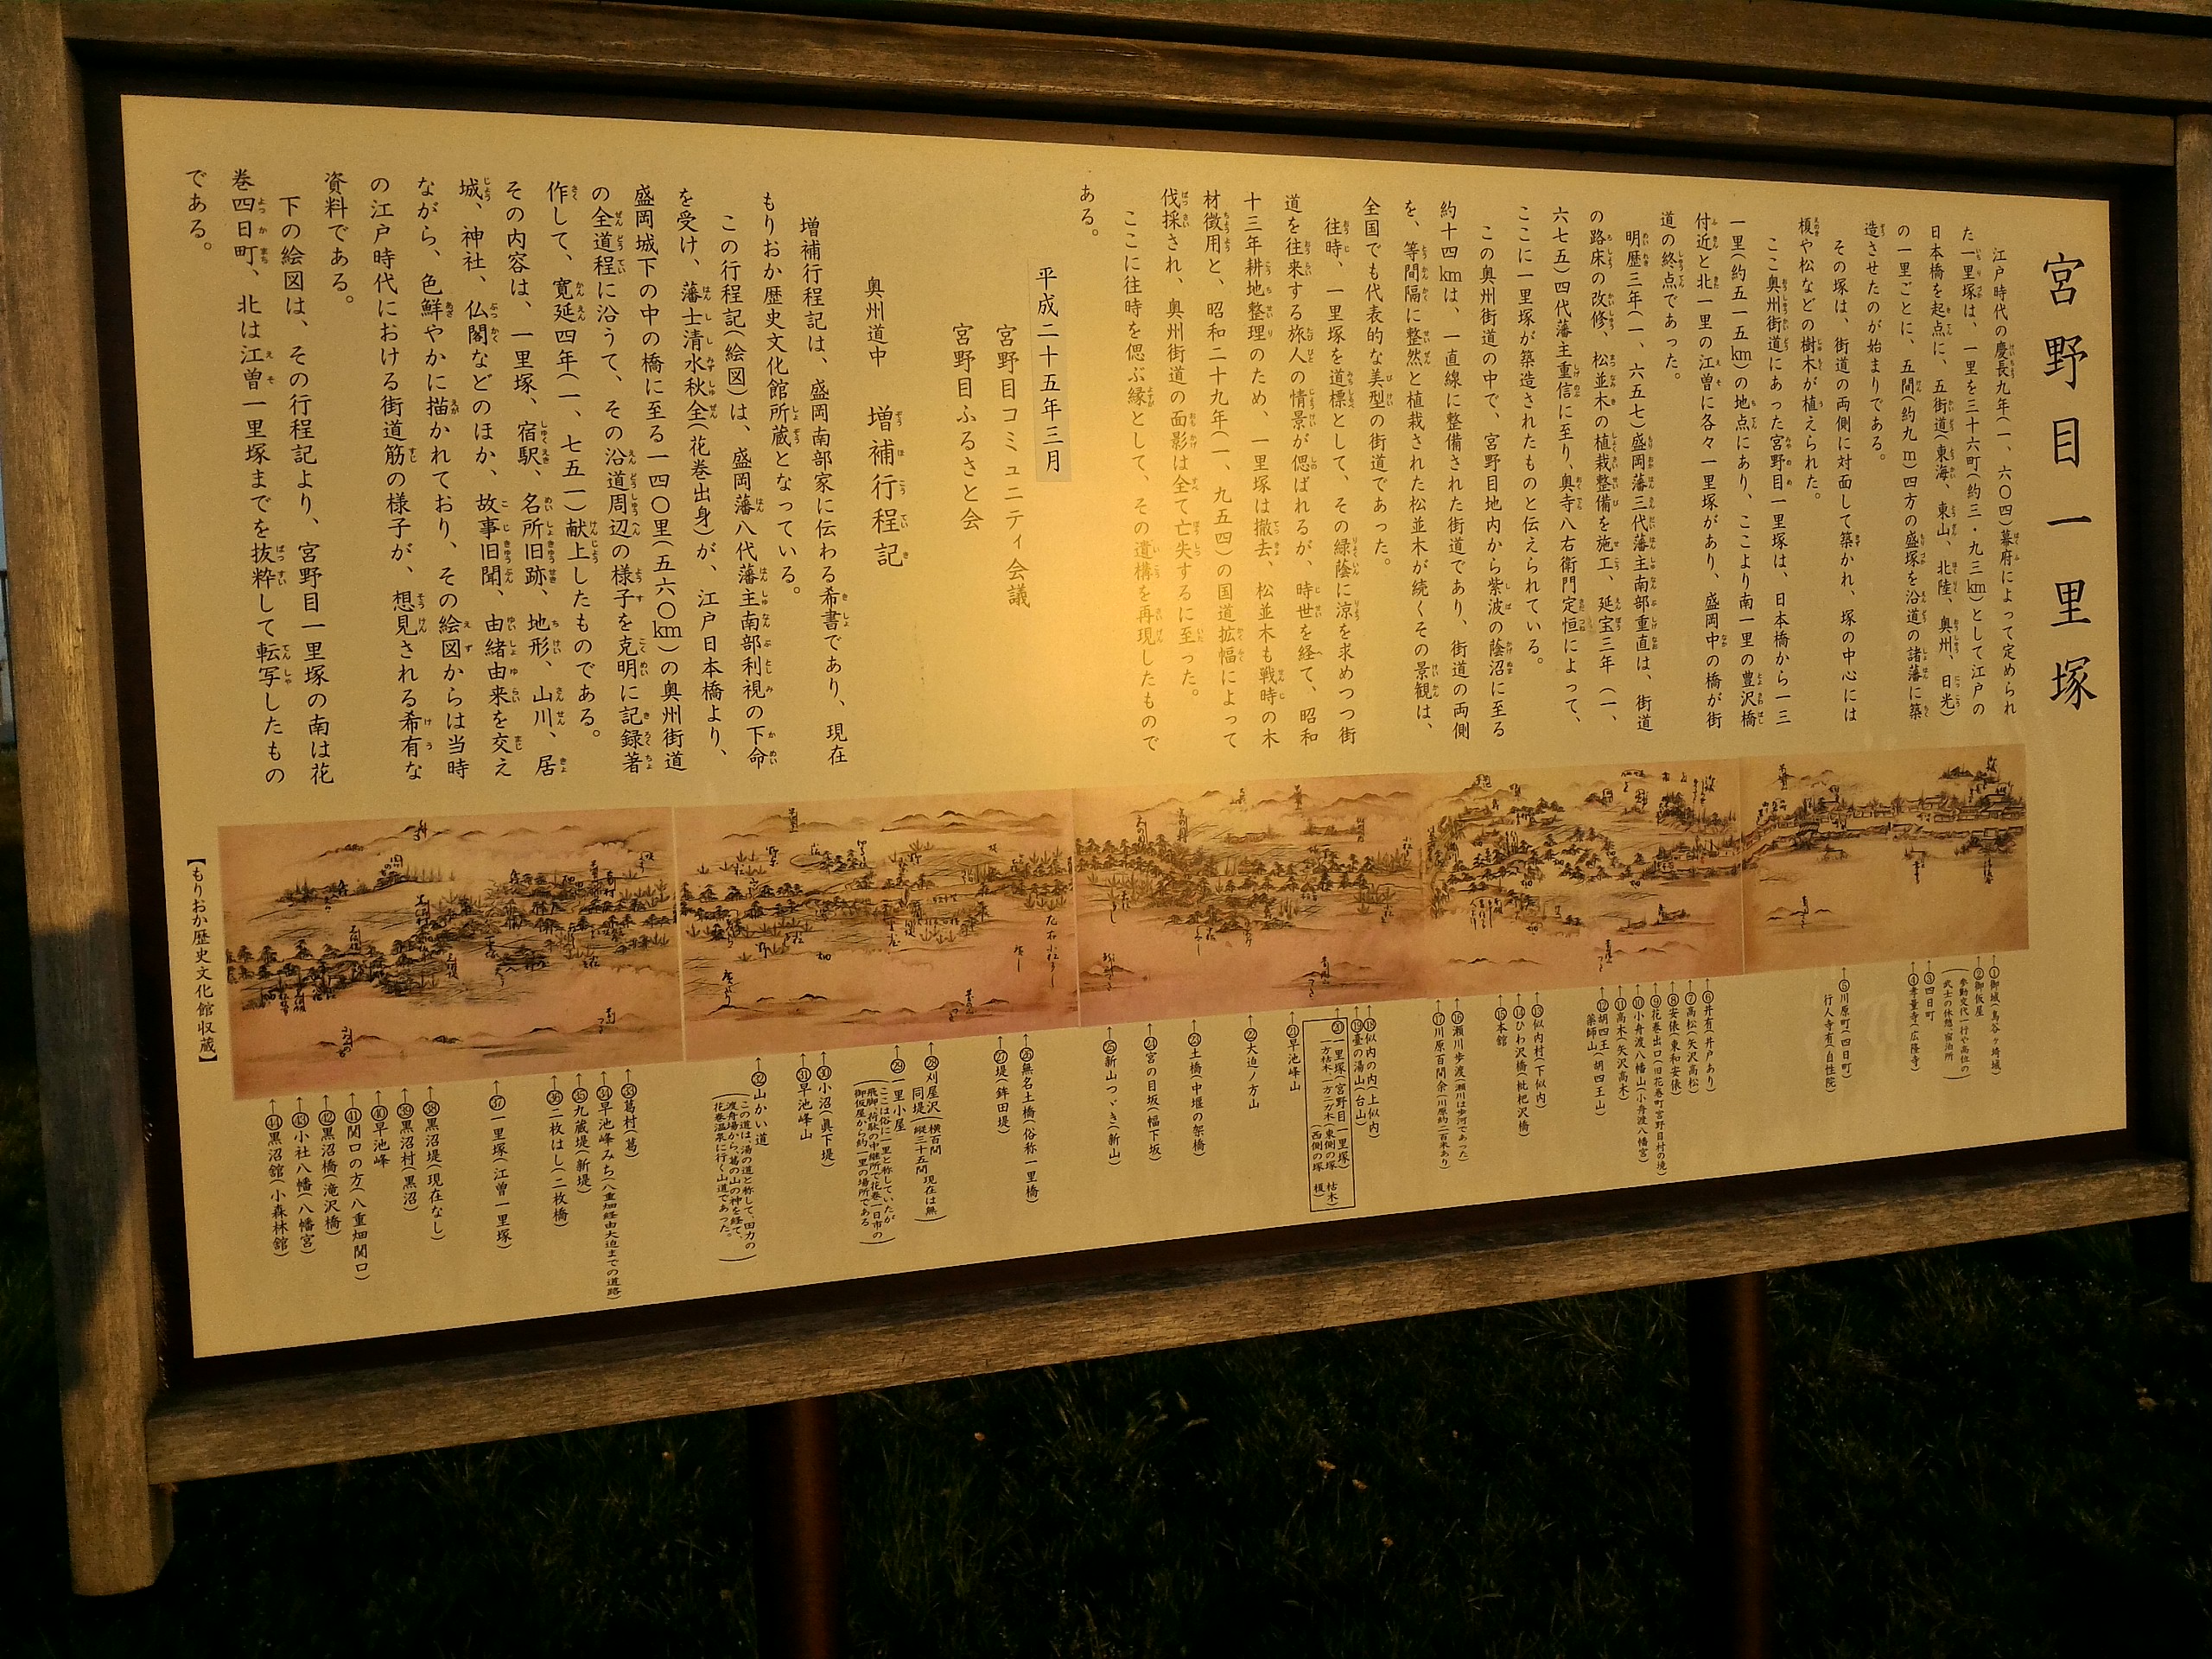 宮野目一里塚
江戸時代の慶長九年(一、六〇四)幕府によって定められ
た一里塚は、一里を三十六町(約三・九三km)として江戸の
日本橋を起点に、五街道(東海、東山、北陸、奥州、日光)
の一里ごとに、五間(約九m)四方の盛塚を沿道の諸藩に築
造させたのが始まりである。
その塚は、街道の両側に対面して築かれ、塚の中心には
榎や松などの樹木が植えられた。
ここ奥州街道にあった宮野目一里塚は、日本橋から一三
一里(約五一五km)の地点にあり、ここより南一里の豊沢橋
付近と北一里の江曽に各々一里塚があり、盛岡中の橋が街
道の終点であった。
明歴三年(一、六五七)盛岡藩三代藩主南部重直は、街道
の路床の改修、松並木の植栽整備を施工、延宝三年(一、
六七五)四代藩主重信に至り、奥寺八右衛門定恒によって、
ここに一里塚が築造されたものと伝えられている。
この奥州街道の中で、宮野目地内から紫波の蔭沼に至る
約十四kmは、一直線に整備された街道であり、街道の両側
を、等間隔に整然と植栽された松並木が続くその景観は、
全国でも代表的な美型の街道であった。
往時、一里塚を道標として、その緑陰に涼を求めつつ街
道を往来する旅人の情景が偲ばれるが、時世を経て、昭和
十三年耕地整理のため、一里塚は撤去、松並木も戦時の木
材徴用と、昭和二十九年(一、九五四)の国道拡幅によって
伐採され、奥州街道の面影は全て亡失するに至った。
ここに往時を偲ぶ縁として、その遺構を再現したもので
ある。
平成二十五年三月
宮野目コミュニティ会議
宮野目ふるさと会
奥州道中 増補行程記
増補行程記は、盛岡南部家に伝わる希書であり、現在
もりおか歴史文化館所蔵となっている。
この行程記(絵図)は、盛岡藩八代藩主南部利視の下命
を受け、藩士清水秋全(花巻出身)が、江戸日本橋より、
盛岡城下の中の橋に至る一四〇里(五六〇km)の奥州街道
の全道程に沿うて、その沿道周辺の様子を克明に記録著
作して、寛延四年(一、七五一)献上したものである。
その内容は、一里塚、宿駅、名所旧跡、地形、山川、居
城、神社、仏閣などのほか、故事旧聞、由緒由来を交え
ながら、色鮮やかに描かれており、その絵図からは当時
の江戸時代における街道筋の様子が、想見される希有な
資料である。
下の絵図は、その行程記より、宮野目一里塚の南は花
巻四日町、北は江曽一里塚までを抜粋して転写したもの
である。
①御城(鳥谷ヶ埼城)
②御仮屋
(参勤交代一行や高位の
武士の休憩・宿泊所)
③四日町
④専量寺(広隆寺)
⑤川原町(四日町)
行人寺有(自性院)
⑥井有(井戸あり)
⑦高松(矢沢高松)
⑧安俵(東和安俵)
⑨花巻出口(旧花巻町宮野目村の境)
⑩小舟渡八幡山(小舟渡八幡宮)
⑪高木(矢沢高木)
⑫胡四王(胡四王山)
薬師山
⑬似内村(下似内)
⑭ひわ沢橋(枇杷沢橋)
⑮本館
⑯瀬川歩渡(瀬川は歩河であった)
⑰川原百間余(川原約二百米あり)
⑱似内の内(上似内)
⑲臺の湯山(台山)
⑳一里塚(宮野目一里塚)
一方枯木(東側の塚 枯木)
一方二ガ木(西側の塚 榎)
㉑早池峰山
㉒大迫ノ方山
㉓土橋(中堰の架橋)
㉔宮の目坂(幅下坂)
㉕新山つゞき(新山)
㉖無名土橋(俗称一里橋)
㉗堤(鉾田堤)
㉘刈屋沢(横百間
同堤(縦三十五間 現在は無)
㉙一里小屋
(ここは俗に一里と称していたが
飛脚、荷駄の中継所で花巻一日市の
御仮屋から約一里の場所である)
㉚小沼(真下堤)
㉛早池峰山
㉜山かい道
(この道は、湯の道と称して、田力の
渡舟場から、葛の山の神を経て、
花巻温泉に行く山道であった。)
㉝葛村(葛)
㉞早池峰みち(八重畑経由大迫までの道路)
㉟九蔵堤(新堤)
㊱二枚はし(二枚橋)
㊲一里塚(江曽一里塚)
㊳黒沼堤(現在なし)
㊴黒沼村(黒沼)
㊵早池峰
㊶関口の方(八重畑関口)
㊷黒沼橋(滝沢橋)
㊸小社八幡(八幡宮)
㊹黒沼館(小森林館)
【もりおか歴史文化館収蔵】